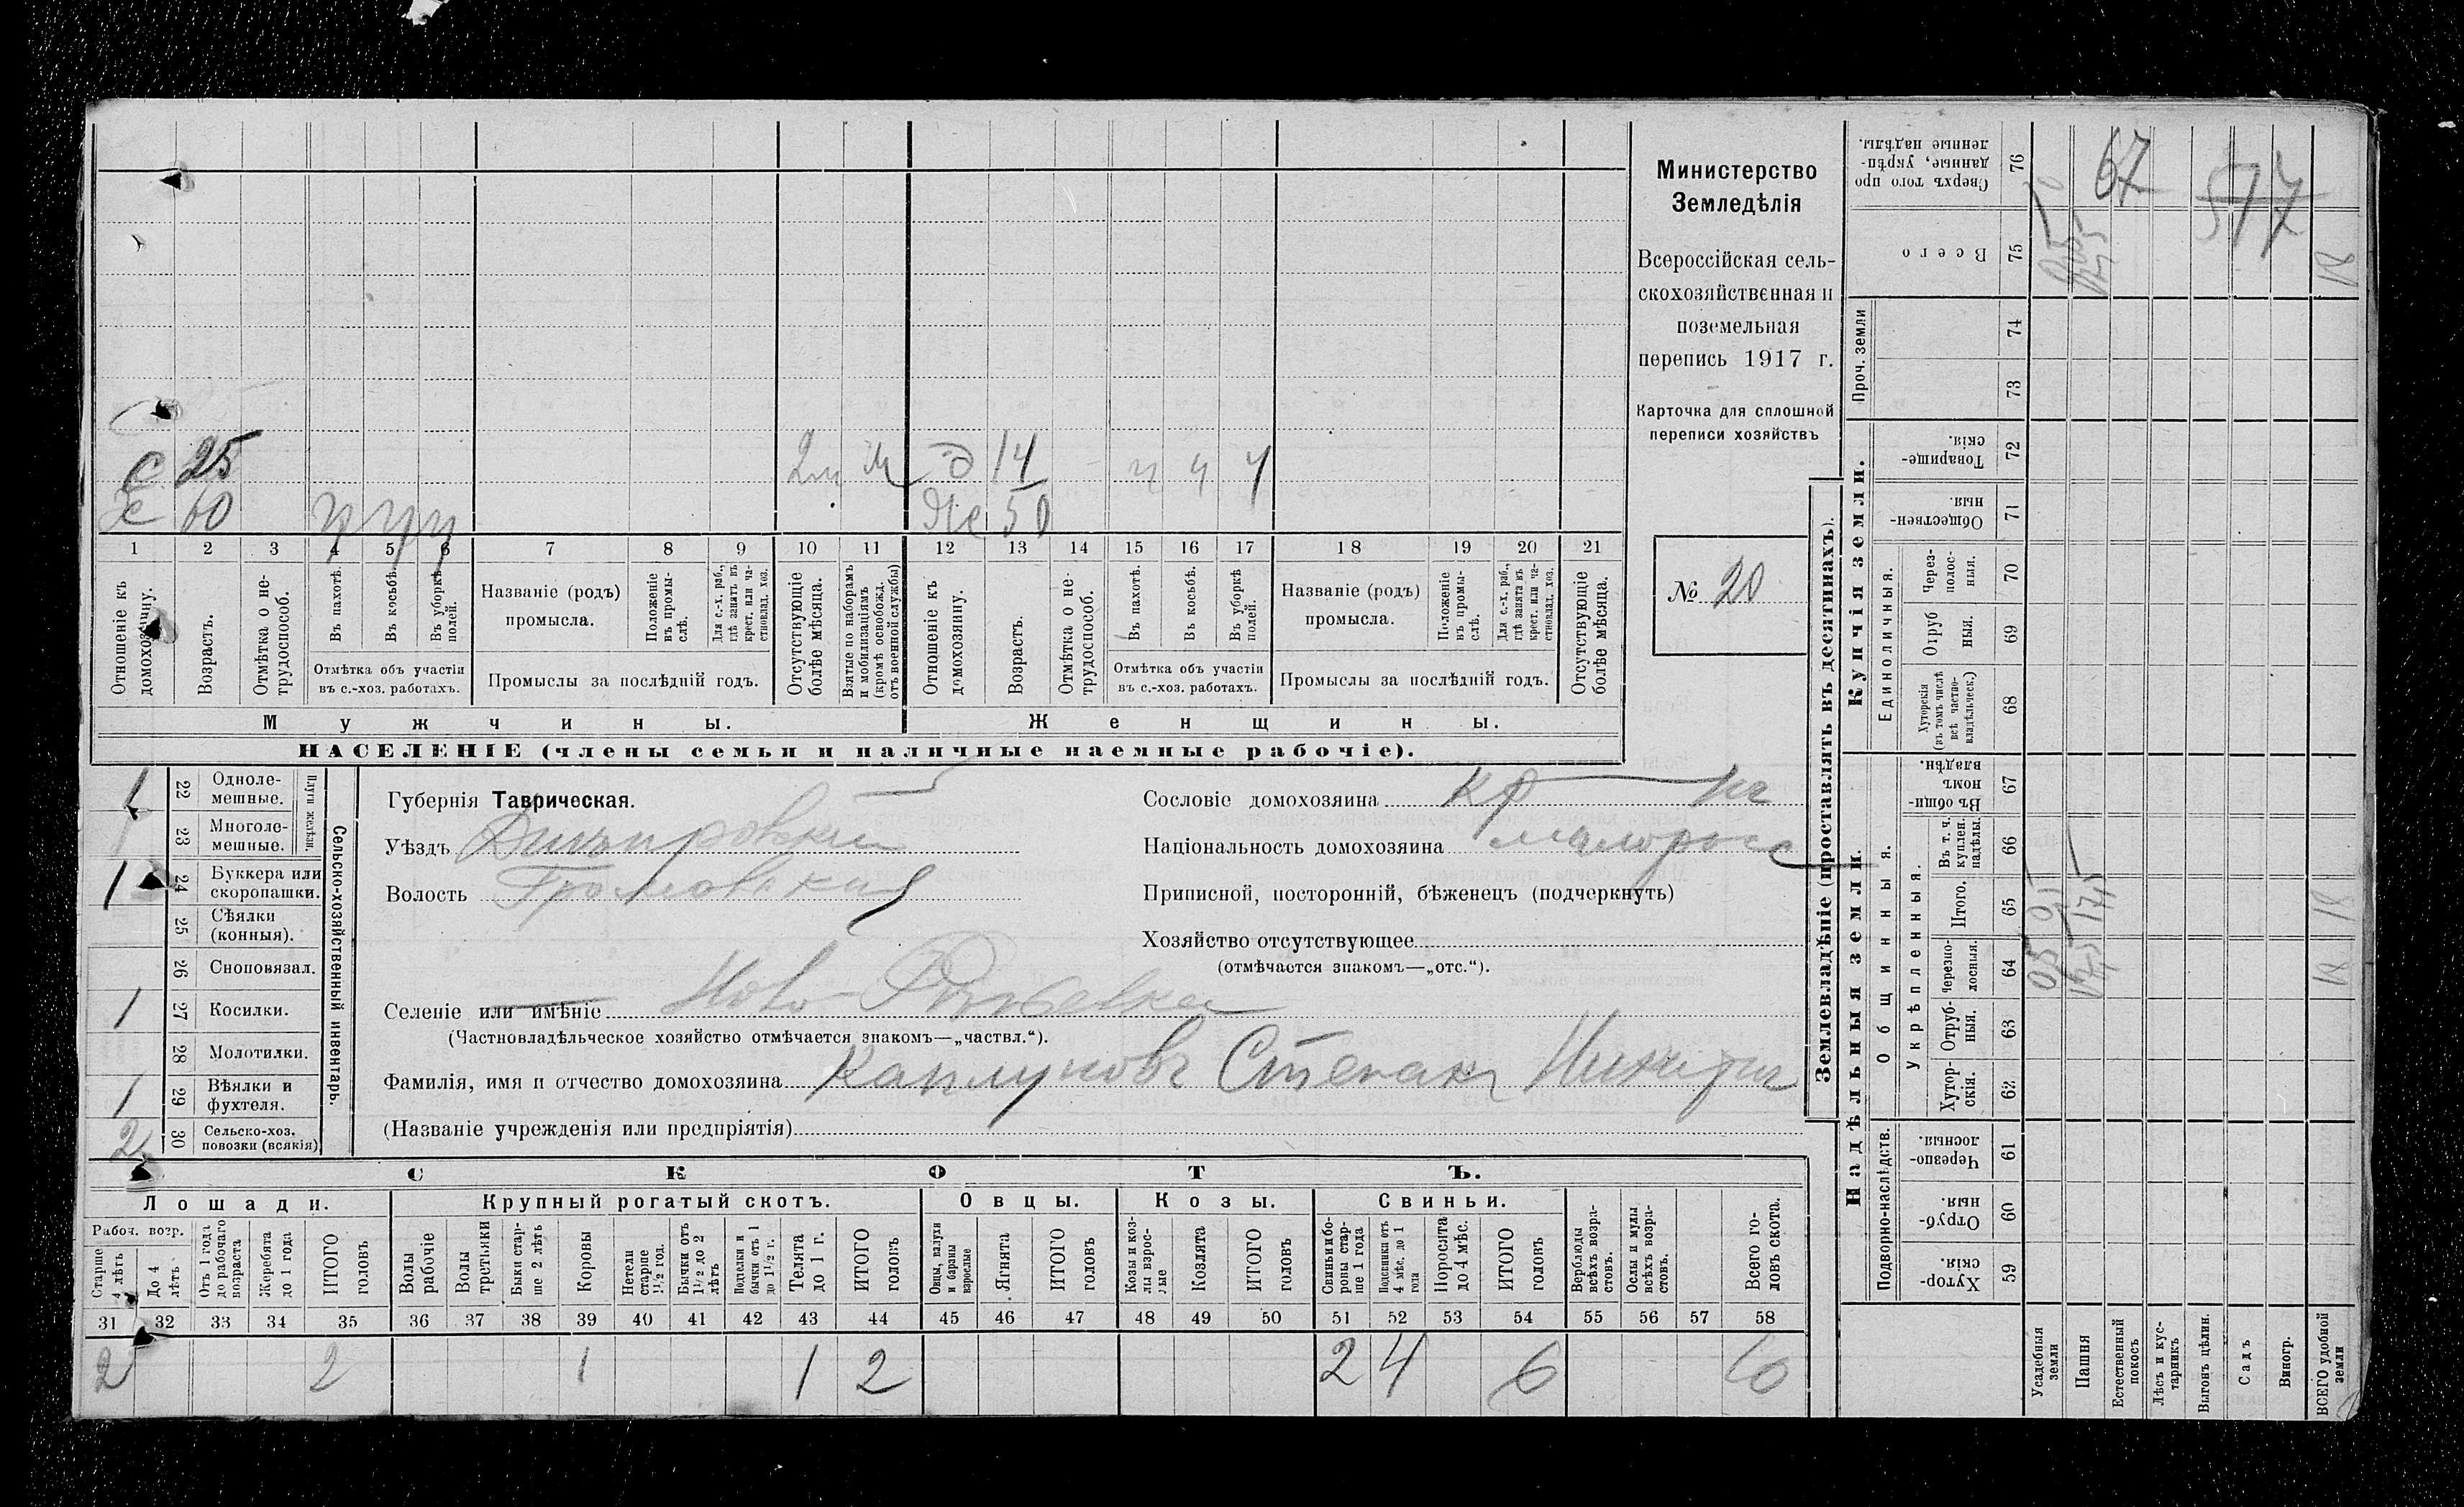 Министерство
Земледѣлія
Всероссійская сель-
скохозяйственная и
поземельная
перепись 1917 г.
Карточка для сплошной
переписи хозяйствъ
№ 20
С 25 2 м м д 14 ч ч ч
Х 60 ч ч ч Же 50
1 2 3 4 5 6 7 8 9 10 11 12 13 14 15 16 17 18 19 20 21
Отношеніе къ домохозяину.
Возрастъ.
Отмѣтка о не-трудоспособ.
Въ пахотѣ.
Въ косьбѣ.
Въ уборкѣ полей.
Отмѣтка объ участіи
въ с.-хоз. работахъ.
Названіе (родъ)
промысла.
Положеніе въ промы-слѣ.
Для с.-х. раб., гдѣ занятъ въ крест. или ча-стновлад. хоз.
Промыслы за послѣдній годъ.
Отсутствующіе болѣе мѣсяца.
Взятые по наборамъ и мобилизаціямъ (кромѣ освобожд. отъ военной службы)
Отношеніе къ домохозяину.
Возрастъ.
Отмѣтка о не-трудоспособ.
Въ пахотѣ.
Въ косьбѣ.
Въ уборкѣ полей.
Отмѣтка объ участіи
въ с.-хоз. работахъ.
Названіе (родъ)
промысла.
Положеніе въ промы-слѣ.
Для с.-х. раб., гдѣ занята въ крест. или ча-стновлад. хоз.
Промыслы за послѣдній годъ.
Отсутствующіе болѣе мѣсяца.
Мужчины. Женщины.
НАСЕЛЕНІЕ (члены семьи и наличные наемные рабочіе).
1 22 Одноле-мешные.
23 Многоле-мешные.
Плуги желѣзн.
1 24 Буккера или скоропашки.
25 Сѣялки (конныя).
26 Сноповязал.
1 27 Косилки.
28 Молотилки.
1 29 Вѣялки и фухтеля.
2 30 Сельско-хоз. повозки (всякія)
Сельско-хозяйственный инвентарь.
Губернія Таврическая.
Уѣздъ Днѣпровскій
Волость Громовская
Селеніе или имѣніе Ново-
(Частновладѣльческое хозяйство отмѣчается знакомъ—„частвл.“).
Фамилія, имя и отчество домохозяина Каплуновъ Степанъ Никитич
(Названіе учрежденія или предпріятія)
Сословіе домохозяина кр-нъ
Національность домохозяина малоросс
Приписной, посторонній, бѣженецъ (подчеркнуть)
Хозяйство отсутствующее
(отмѣчается знакомъ—„отс.“).
СКОТЪ.
Лошади. Крупный рогатый скотъ. Овцы. Козы. Свиньи.
Рабоч. возр.
Старше 4 лѣтъ
До 4 лѣтъ
Отъ 1 года до рабочаго возраста
Жеребята до 1 года
ИТОГО головъ
Волы рабочіе
Волы третьяки
Быки стар-ше 2 лѣтъ
Коровы
Нетели старше 1½ год.
Бычки отъ 1½ до 2 лѣтъ
Подтелки и бычки отъ 1 до 1½ г.
Телята до 1 г.
ИТОГО головъ
Овцы, валухи и бараны взрослые
Ягнята
ИТОГО головъ
Козы и коз-лы взрос-лые
Козлята
ИТОГО головъ
Свиньи и бо-ровы стар-ше 1 года
Подсвинки отъ 4 мѣс. до 1 года
Поросята до 4 мѣс.
ИТОГО головъ
Верблюды всѣхъ возра-стовъ.
Ослы и мулы всѣхъ возра-стовъ.
Всего го-ловъ скота.
31 32 33 34 35 36 37 38 39 40 41 42 43 44 45 46 47 48 49 50 51 52 53 54 55 56 57 58
2 2 1 1 2 2 4 6 10
Землевладѣніе (проставлять въ десятинахъ).
Купчія земли.
Надѣльныя земли.
Сверхъ того про-данные, укрѣп-ленные надѣлы. 76
Всего 75
Проч. земли 74 73
Товарище-скія. 72
Обществен-ныя. 71
Единоличныя.
Через-полос-ныя. 70
Отруб ныя. 69
Хуторскія (въ томъ числѣ всѣ частно-владѣльческ.) 68
Общинныя.
Въ общи-номъ владѣн. 67
Укрѣпленныя.
Въ т. ч. куплен. надѣлы. 66
Итого. 65
Черезпо-лосныя. 64
Отруб-ныя. 63
Хутор-скія. 62
Подворно-наслѣдств.
Черезпо-лосныя. 61
Отруб-ныя. 60
Хутор-скія. 59
Усадебныя земли
Пашня
Естественный покосъ
Лѣсъ и кус-тарникъ
Выгонъ цѣлин.
Садъ
Виногр.
ВСЕГО удобной земли
67
517
05
17,5
18
18
18